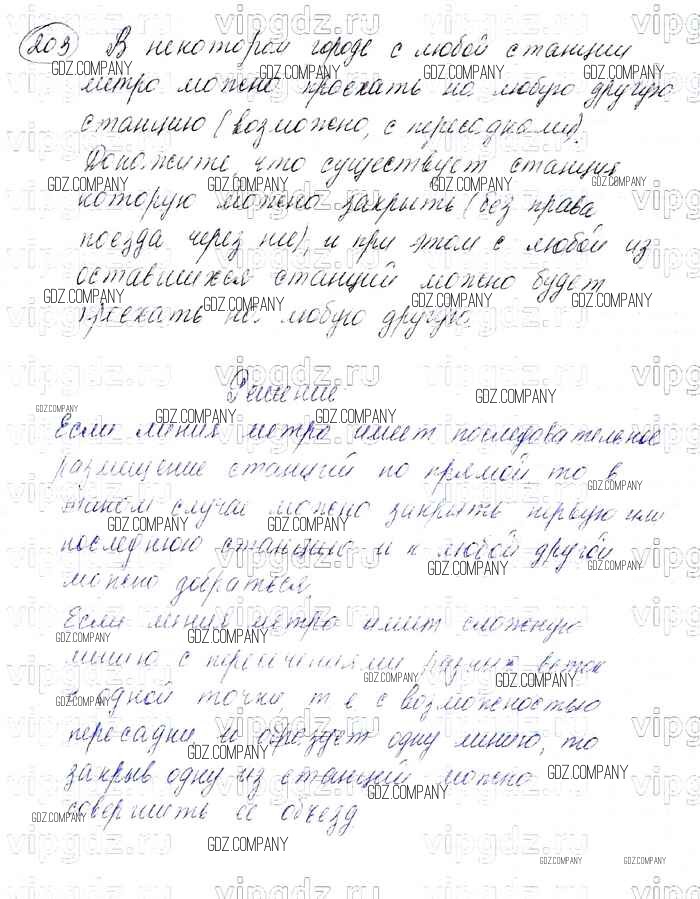 203 В некотором городе с любой станции
метро можно проехать на любую другую
станцию (возможно, с пересадками).
Докажите, что существует станция,
которую можно закрыть (без права
поезда через нее), и при этом с любой из
оставшихся станций можно будет
проехать на любую другую.
Решение
Если линия метро имеет последовательное
размещение станций по прямой то в
таком случае можно закрыть первую или
последнюю станцию и к любой другой
можно добраться.
Если линия метро имеет сложную
линию с пересечениями разных веток
в одной точки, т е с возможностью
пересадки, и образует одну линию, то
закрыв одну из станций можно
совершить ее объезд
GDZ.COMPANY
vipgdz.ru